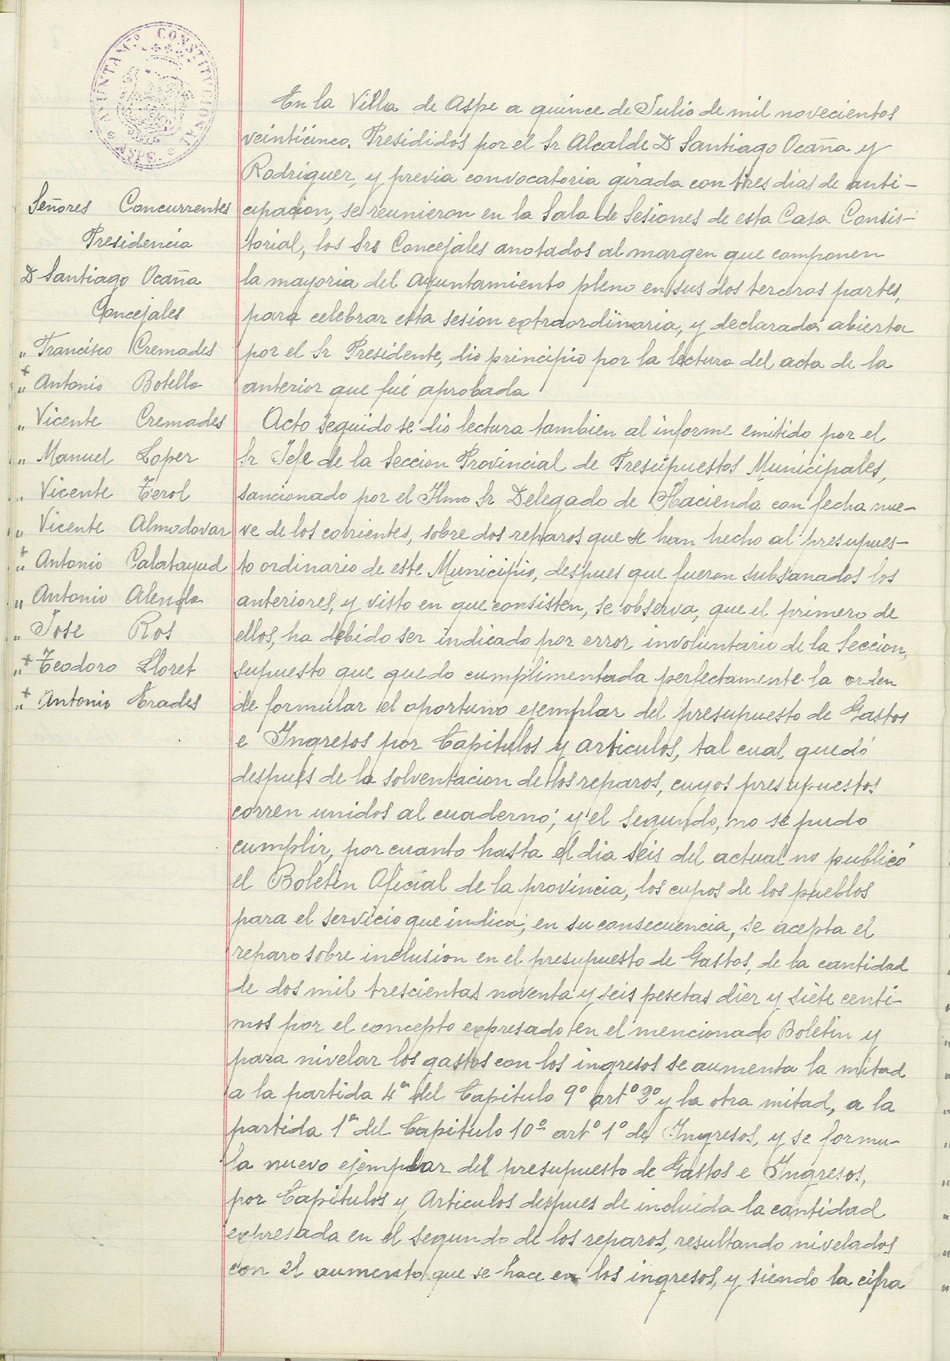 AYUNTAMTO CONSTITUCIONAL
ASPE
Señores Concurrentes
Presidencia
D Santiago Ocaña
Concejales
" Francisco Cremades
+ " Antonio Botella
" Vicente Cremades
" Manuel Loper
" Vicente Terol
" Vicente Almodovar
+ " Antonio Calatayud
" Antonio Alenda
" Jose Ros
+ " Teodoro Lloret
+ " Antonio Prades
En la Villa de Aspe a quince de Julio de mil novecientos
veinticinco. Presididos por el Sr Alcalde D Santiago Ocaña y
Rodriguer, y previa convocatoria girada con tres dias de anti-
cipacion, se reunieron en la Sala de Sesiones de esta Casa Consis-
torial, los Srs Concejales anotados al margen que componen
la mayoria del Ayuntamiento pleno en sus dos terceras partes,
para celebrar esta sesion extraordinaria, y declarada abierta
por el Sr Presidente, dio principio por la lectura del acta de la
anterior que fué aprobada
Acto seguido se dio lectura tambien al informe emitido por el
Sr Jefe de la Seccion Provincial de Presupuestos Municipales,
sancionado por el Ilmo Sr Delegado de Hacienda con fecha nue-
ve de los corrientes, sobre dos reparos que se han hecho al presupues-
to ordinario de este Municipio, despues que fueron subsanados los
anteriores, y visto en que consisten, se observa, que el primero de
ellos, ha debido ser indicado por error involuntario de la Seccion,
supuesto que quedo cumplimentada perfectamente la orden
de formular el oportuno ejemplar del presupuesto de Gastos
e Ingresos por Capitulos y articulos, tal cual quedó
despues de la solventacion de los reparos, cuyos presupuestos
corren unidos al cuaderno; y el segundo, no se pudo
cumplir, por cuanto hasta el dia seis del actual no publicó
el Boletin Oficial de la provincia, los cupos de los pueblos
para el servicio que indica; en su consecuencia, se acepta el
reparo sobre inclusion en el presupuesto de Gastos, de la cantidad
de dos mil trescientas noventa y seis pesetas dier y siete centi-
mos por el concepto expresado en el mencionado Boletin y
para nivelar los gastos con los ingresos se aumenta la mitad
a la partida 4ª del Capitulo 9º artº 2º y la otra mitad, a la
partida 1ª del Capitulo 10º artº 1º de Ingresos, y se formu-
la nuevo ejemplar del presupuesto de Gastos e Ingresos,
por Capitulos y Articulos despues de incluida la cantidad
expresada en el segundo de los reparos, resultando nivelados
con el aumento que se hace en los ingresos, y siendo la cifra